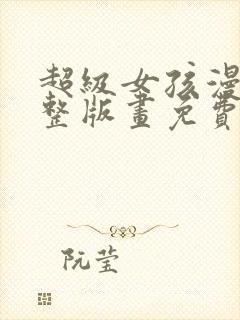 超級女孩漫
整版畫免費
阮莹